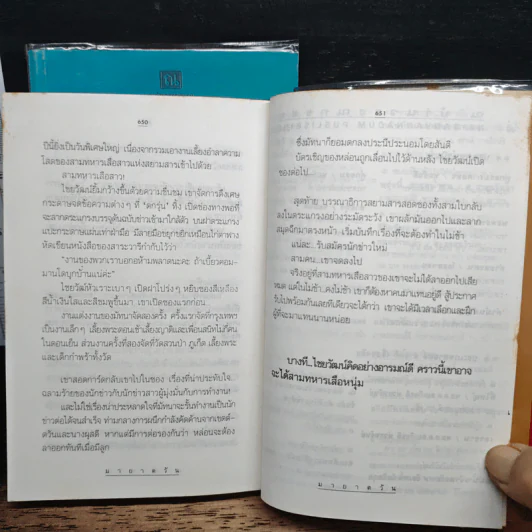 650
ปีนี้ยิ่งเป็นวันพิเศษใหญ่ เนื่องจากรวมเอางานเลี้ยงอำลาความ
โสดของสามทหารเสือสาวแห่งสยามสารเข้าไปด้วย
สามทหารเสือสาว!
ไชยวัฒน์ยิ้มกว้างขึ้นด้วยความชื่นชม เขาจัดการดึงเศษ
กระดาษจดข้อความต่าง ๆ ที่ 'ตกรุ่น' ทิ้ง เปิดช่องทางพอที่
จะลากตระแกรงบรรจุต้นฉบับข่าวเข้ามาใกล้ตัว บนฝาตระแกรง
แปะกระดาษแผ่นเท่าฝ่ามือ มีลายมือขยุกขยิกเหมือนไก่ตาฟาง
หัดเขียนหนังสือของสาระวารีกำกับไว้ว่า
"งานของพวกเราบอกอห้ามพลาดนะคะ ถ้าเบี้ยวคอม-
มานโดบุกบ้านแน่ค่ะ"
ไชยวัฒน์หัวเราะเบาๆ เปิดฝาโปร่งๆ หยิบซองสีเหลือง
สีน้ำเงินไลแลคและสีชมพูขึ้นมา เขาเปิดซองแรกก่อน
งานแต่งงานของมัทนาจัดสองครั้ง ครั้งแรกจัดที่กรุงเทพฯ
เป็นงานเล็กๆ เลี้ยงพระตอนเช้าเลี้ยงญาติและเพื่อนสนิทไม่กี่คน
ในตอนเย็น ส่วนงานครั้งที่สองจัดที่วัดสวนป่า ภูเก็ต เลี้ยงพระ
และเด็กกำพร้าทั้งวัด
เขาสอดการ์ดกลับเข้าไปในซอง เรื่องที่น่าประทับใจ...
ฉลามร้ายของนักข่าวกับนักข่าวสาวผู้มุ่งมั่นกับการทำงาน!
และไม่ใช่เรื่องน่าประหลาดใจที่มัทนาจะขึ้นทำงานเป็นนัก
ข่าวต่อได้จนสำเร็จ ท่ามกลางการผนึกกำลังคัดค้านจากเขตต์-
ตวันและนางผุสดี หากแต่มีการต่อรองกันว่า หล่อนจะต้อง
ลาออกทันทีเมื่อมีลูก
มายาตวัน
651
ซึ่งมัทนาก็ยอมตกลงประนีประนอมโดยสันติ
บัตรเชิญของหล่อนถูกเลื่อนไปไว้ด้านหลัง ไชยวัฒน์เปิด
ซองต่อไป...
สุดท้าย บรรณาธิการสยามสารสอดซองทั้งสามใบกลับ
ลงในตระแกรงอย่างระมัดระวัง เขาผลักมันออกไปและลาก
สมุดฉีกมาตรงหน้า เริ่มบันทึกเรื่องที่จะต้องทำในไม่ช้า
แน่ละ... รับสมัครนักข่าวใหม่
สามคน...เขาจดลงไป
จริงอยู่ที่สามทหารเสือสาวของเขาจะไม่ได้ลาออกไปเสีย
หมด แต่ในไม่ช้า..คงไม่ช้า เขาก็ต้องหาคนมาแทนอยู่ดี สู้ประกาศ
รับไปพร้อมกันเลยทีเดียวจะได้กว่า เขาจะได้มีเวลาเลือกและฝึก
ผู้ที่จะมาแทนนานหน่อย
บางที...ไชยวัฒน์คิดอย่างอารมณ์ดี คราวนี้เขาอาจ
จะได้สามทหารเสือหนุ่ม
มายาตวัน